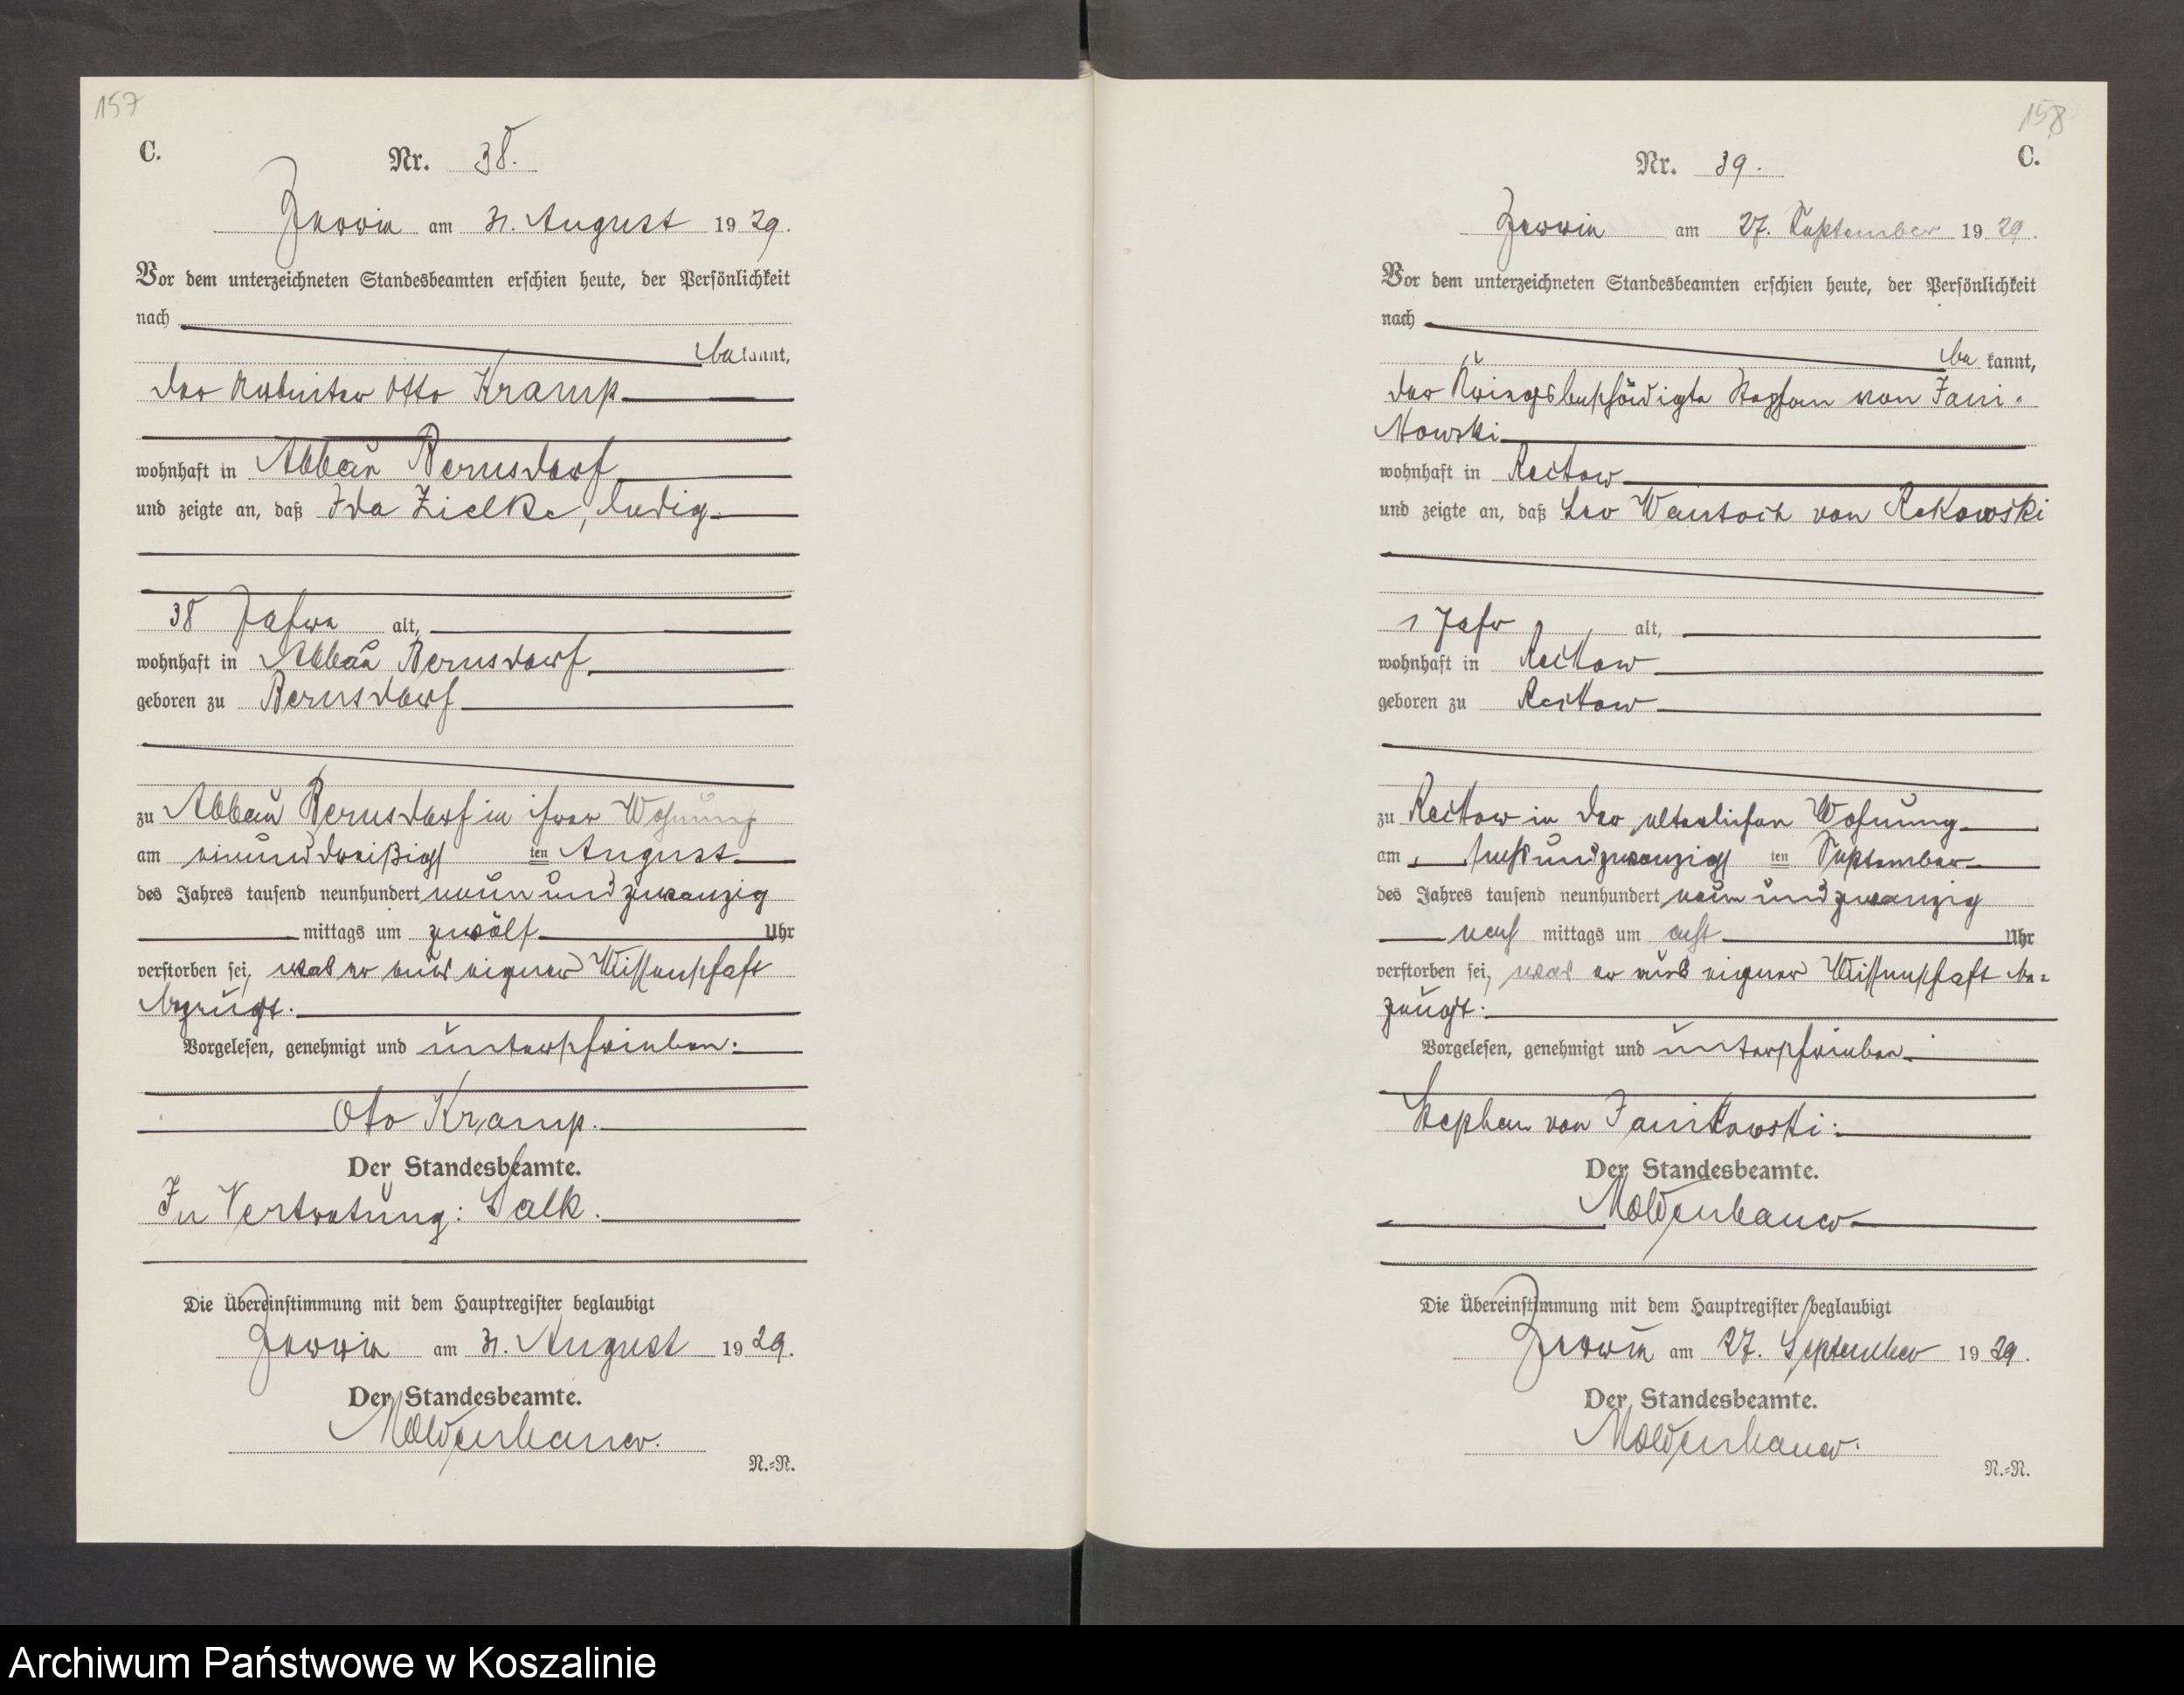 157
C.
Nr. 38.
Jerrin am 31. August 1929.
Vor dem unterzeichneten Standesbeamten erschien heute, der Persönlichkeit
nach
bekannt,
der Arbeiter Otto Kramp
wohnhaft in Abbau Bernsdorf
und zeigte an, daß Ida Zielke, ledig
38 Jahre alt,
wohnhaft in Abbau Bernsdorf
geboren zu Bernsdorf
zu Abbau Bernsdorf in ihrer Wohnung
am einunddreißigsten August
des Jahres tausend neunhundert neunundzwanzig
mittags um zwölf Uhr
verstorben sei, was er aus eigener Wissenschaft
bezeugt.
Vorgelesen, genehmigt und unterschrieben.
Otto Kramp.
Der Standesbeamte.
In Vertretung: Salk.
Die Übereinstimmung mit dem Hauptregister beglaubigt
Jerrin am 31. August 1929.
Der Standesbeamte.
Moldenhauer.
N.=N.
158
C.
Nr. 39.
Jerrin am 27. September 1929.
Vor dem unterzeichneten Standesbeamten erschien heute, der Persönlichkeit
nach
bekannt,
der Kriegsbeschädigte Stephan von Jani-
kowski
wohnhaft in Reckow
und zeigte an, daß Leo Wantoch von Rekowski
1 Jahr alt,
wohnhaft in Reckow
geboren zu Reckow
zu Reckow in der elterlichen Wohnung
am sechsundzwanzigsten September
des Jahres tausend neunhundert neunundzwanzig
nach mittags um acht Uhr
verstorben sei, was er aus eigener Wissenschaft be=
zeugt.
Vorgelesen, genehmigt und unterschrieben.
Stephan von Janikowski.
Der Standesbeamte.
Moldenhauer
Die Übereinstimmung mit dem Hauptregister beglaubigt
Jerrin am 27. September 1929.
Der Standesbeamte.
Moldenhauer.
N.=N.
Archiwum Państwowe w Koszalinie